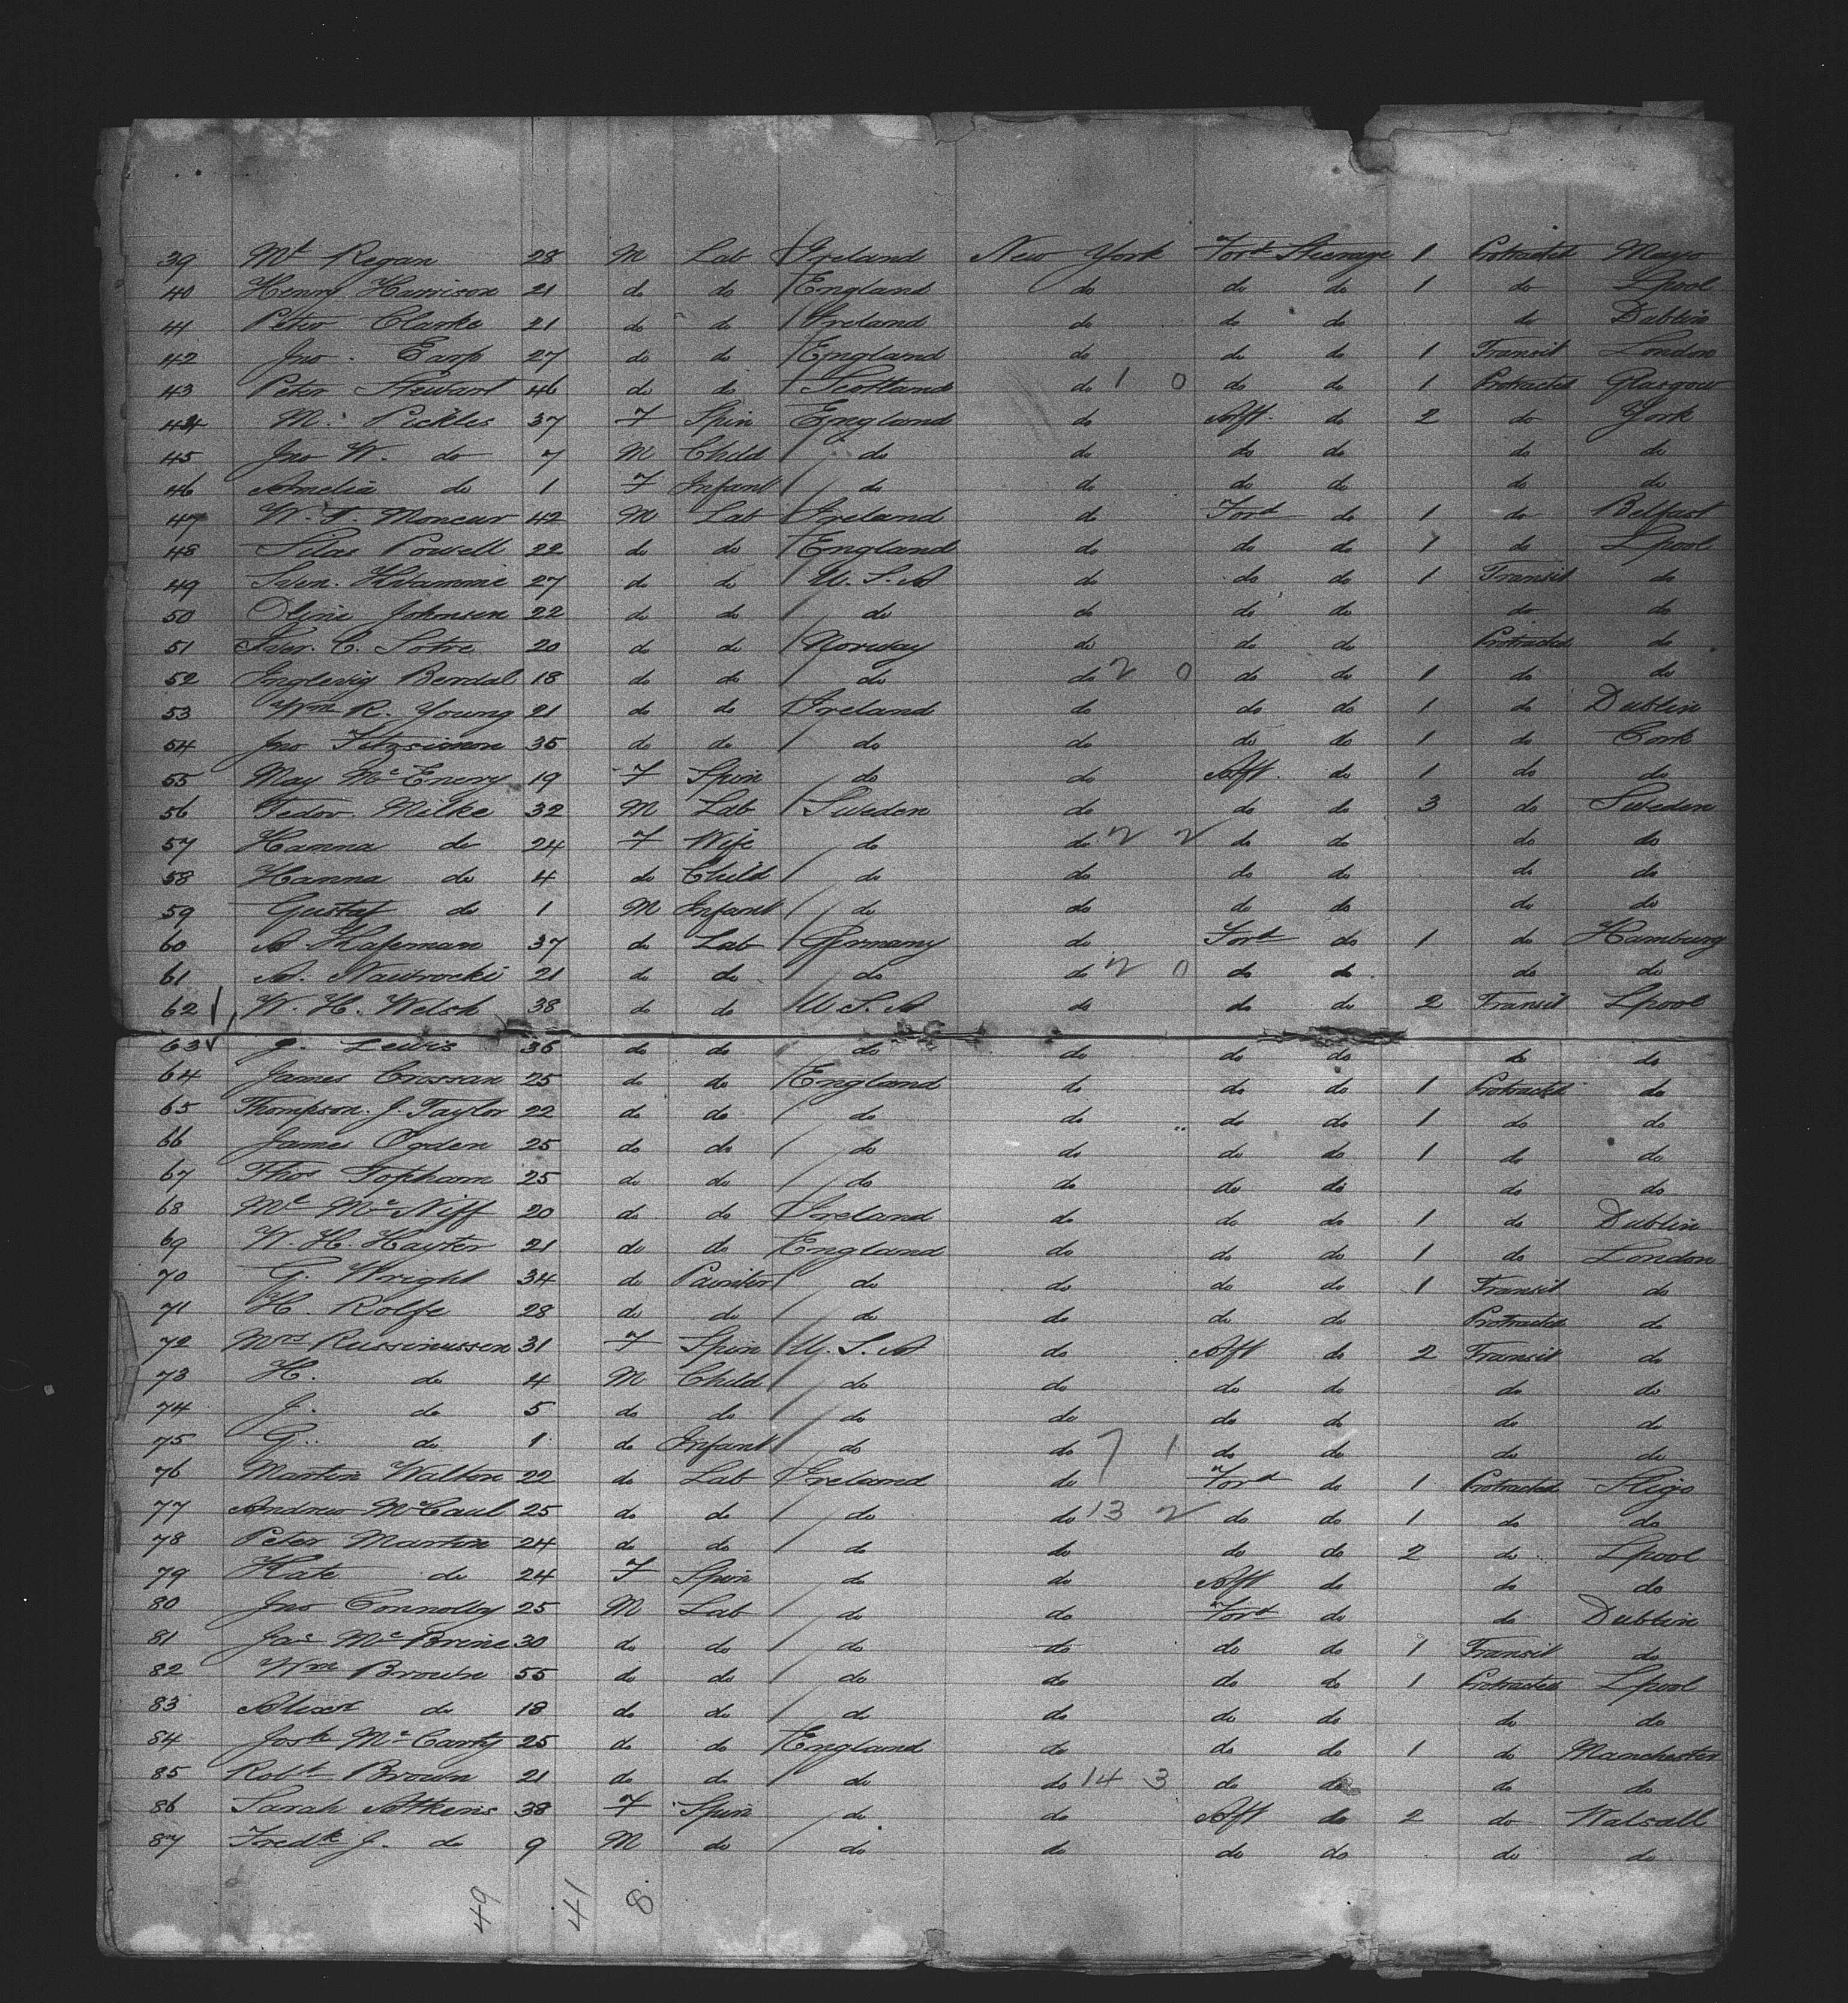 39 Mt Regan 28 M Lab Ireland New York Ford Steerage 1 Protracted Mayo
40 Henry Harrison 21 do do England do do do 1 do Lpool
41 Peter Clarke 21 do do Ireland do do do do Dublin
42 Jno. Earp 27 do do England do do do 1 Transit London
43 Peter Stewart 46 do do Scotland do 1 0 do do 1 Protracted Glasgow
44 M. Pickles 37 F Spin England do Aft. do 2 do York
45 Jno W. do 7 M Child do do do do do do
46 Amelia do 1 F Infant do do do do do do
47 W. T. Moncur 42 M Lab Ireland do Ford do 1 do Belfast
48 Silas Powell 22 do do England do do do 1 do Lpool
49 Sven. Hvamme 27 do do U.S.A do do do 1 Transit do
50 Oline Johnsen 22 do do do do do do do do
51 Iver. C. Sotre 20 do do Norway do do do Protracted do
52 Inglevig Berdal 18 do do do do 2 0 do do 1 do do
53 Wm R. Young 21 do do Ireland do do do 1 do Dublin
54 Jno Fitzsimon 35 do do do do do do 1 do Cork
55 May McEnery 19 F Spin do do Aft. do 1 do do
56 Fedor Milke 32 M Lab Sweden do do do 3 do Sweden
57 Hanna do 24 F Wife do do 2 2 do do do do
58 Hanna do 4 do Child do do do do do do
59 Gustaf do 1 M Infant do do do do do do
60 A Hafeman 37 do Lab Germany do Ford do 1 do Hamburg
61 A. Nawrocki 21 do do do do 2 0 do do do do
62 W. H. Welsh 38 do do U.S.A do do do 2 Transit Lpool
63 J. Lewis 36 do do do do do do do do
64 James Crossan 25 do do England do do do 1 Protracted do
65 Thompson. J. Taylor 22 do do do do do do 1 do do
66 James Ogden 25 do do do do do do 1 do do
67 Thos Topham 25 do do do do do do do do
68 Mt McNiff 20 do do Ireland do do do 1 do Dublin
69 W. H. Hayter 21 do do England do do do 1 do London
70 G. Wright 34 do Painter do do do do 1 Transit do
71 H. Rolfe 28 do do do do do do Protracted do
72 Mrs Russinussen 31 F Spin U.S.A do Aft do 2 Transit do
73 H. do 4 M Child do do do do do do
74 J. do 5 do do do do do do do do
75 G. do 1 do Infant do do 7 1 do do do do
76 Martin Walton 22 do Lab Ireland do Ford do 1 Protracted Sligo
77 Andrew McCaul 25 do do do do 13 2 do do 1 do do
78 Peter Martin 24 do do do do do do 2 do Lpool
79 Kate do 24 F Spin do do Aft do do do
80 Jno Connolly 25 M Lab do do Ford do do Dublin
81 Jas McBrine 30 do do do do do do 1 Transit do
82 Wm Brown 55 do do do do do do 1 Protracted Lpool
83 Alexr do 18 do do do do do do do do
84 Josh McCarty 25 do do England do do do 1 do Manchester
85 Robt Brown 21 do do do do 14 3 do do do do
86 Sarah Atkens 38 F Spin do do Aft do 2 do Walsall
87 Fredk J. do 9 M do do do do do do do
49 41 8